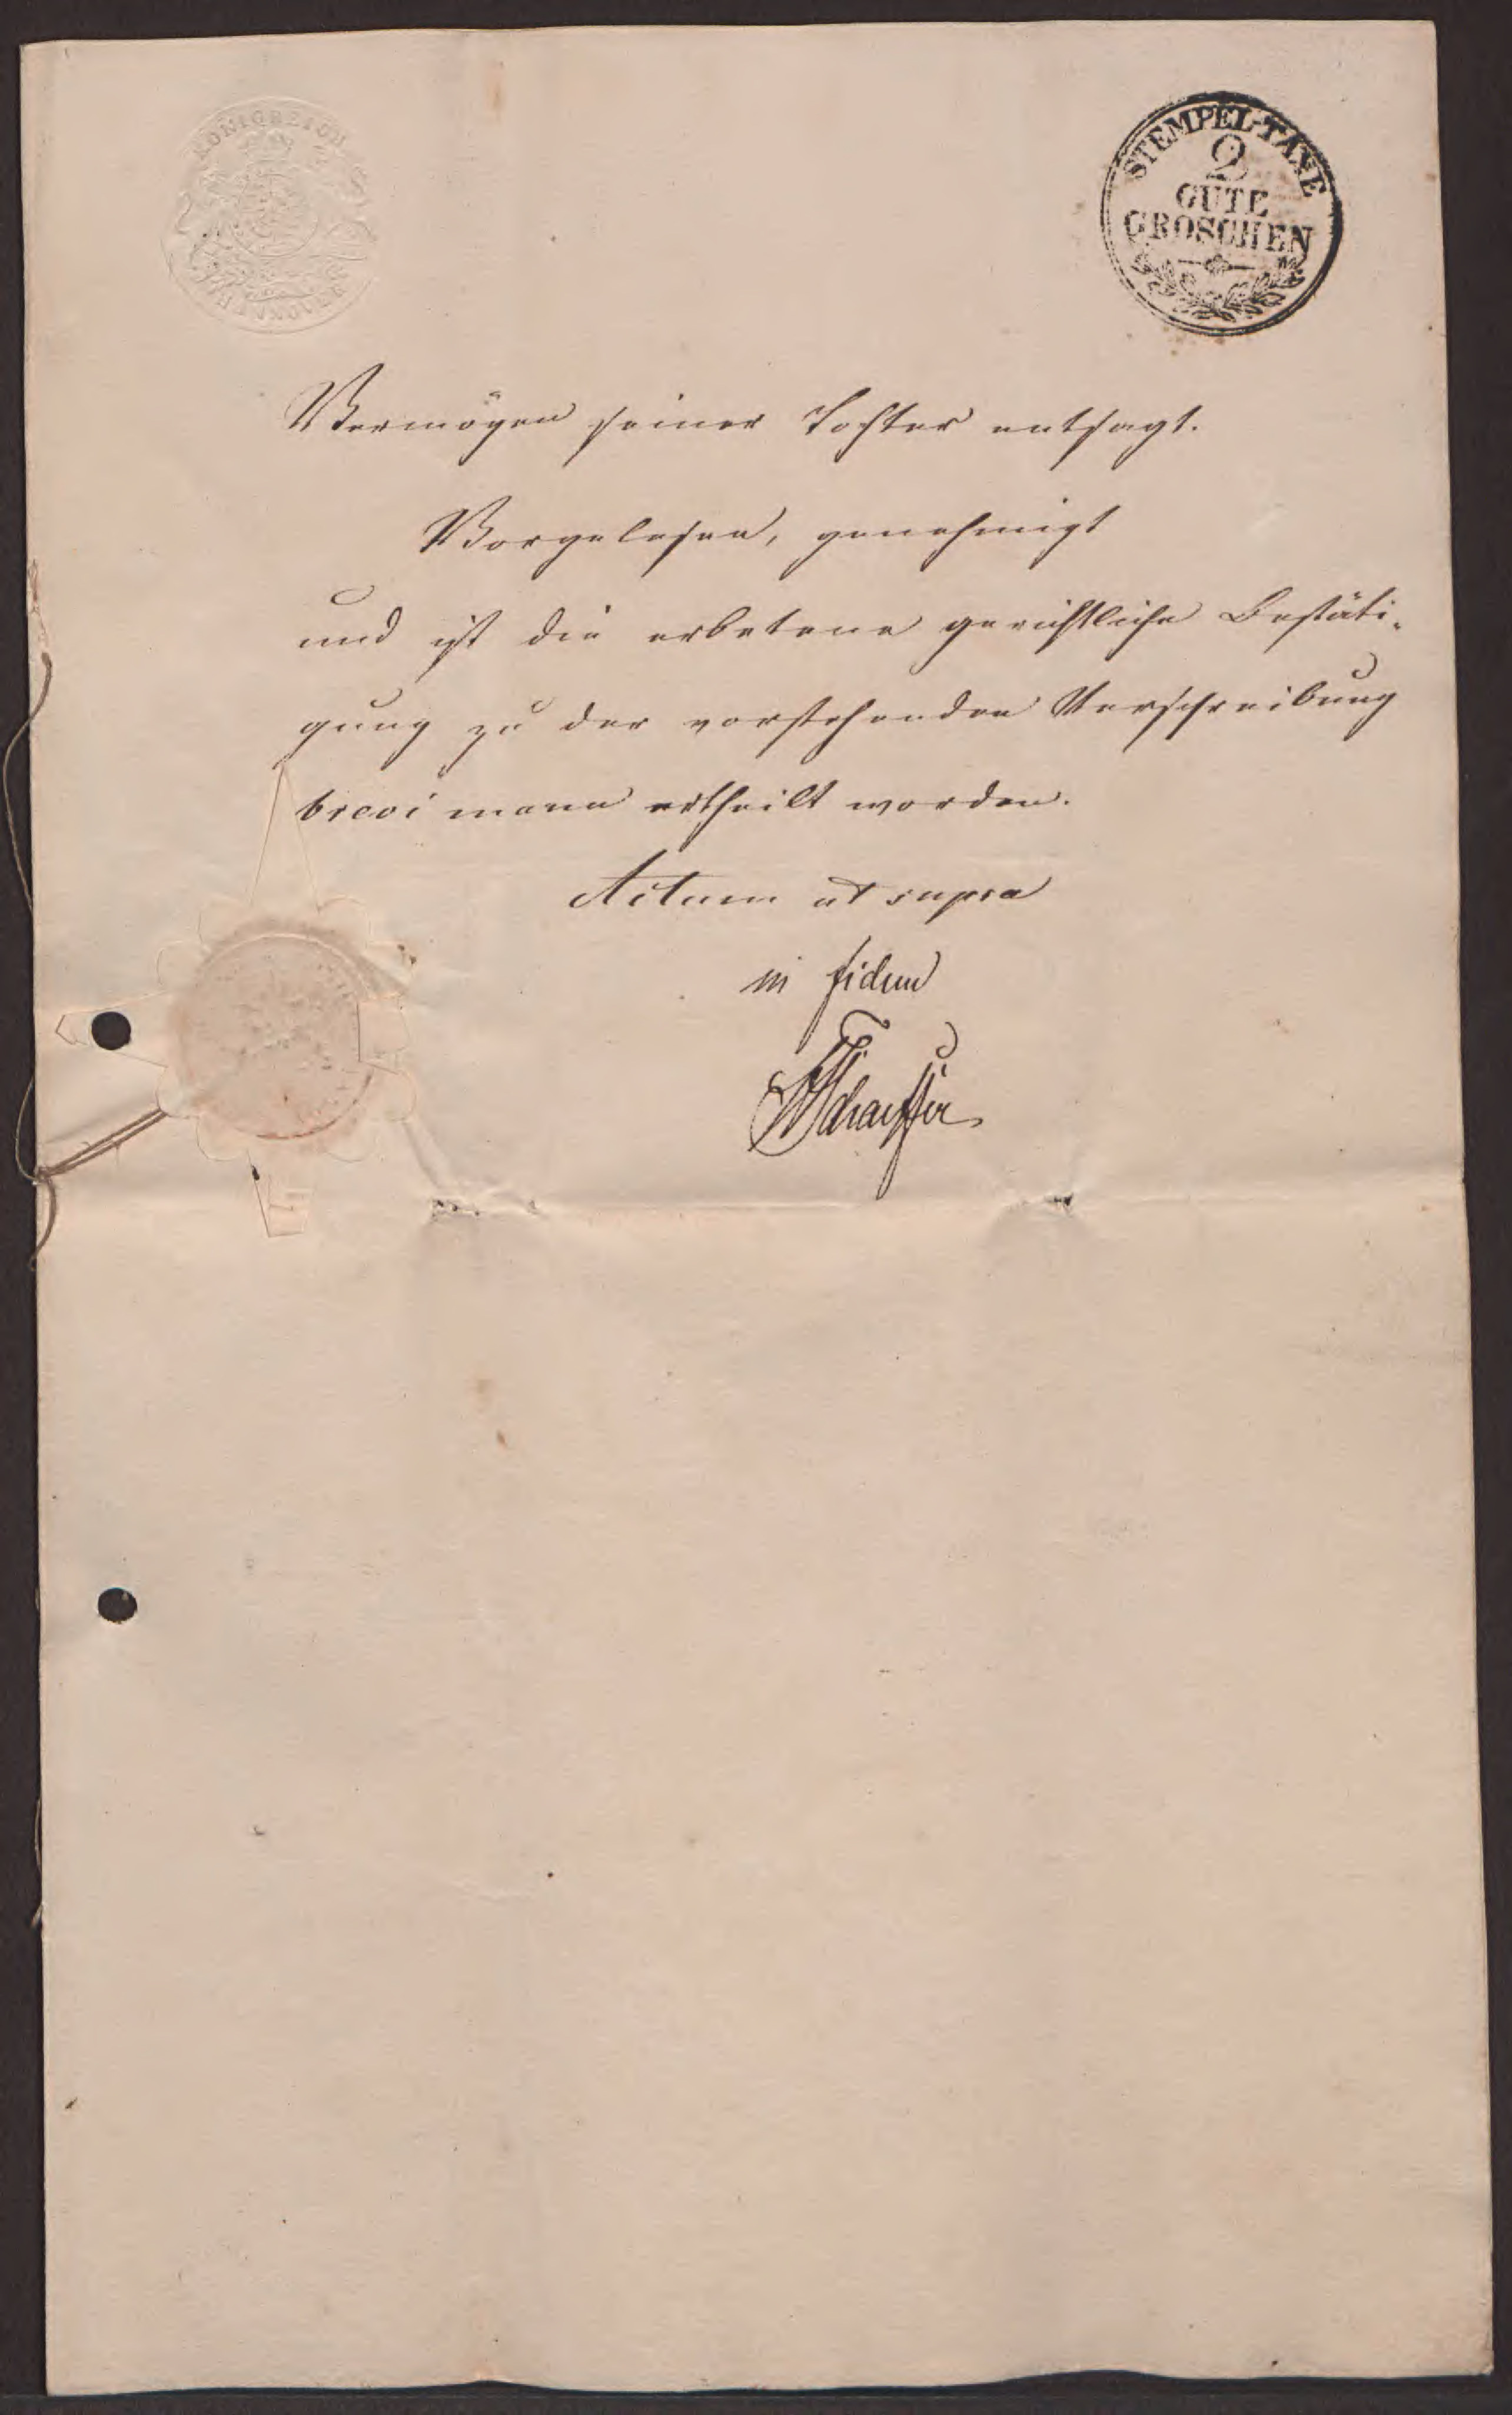 KÖNIGREICH
HANNOVER
STEMPEL-TAXE
2
GUTE
GROSCHEN
Vermögen seiner Tochter entsagt.
Vorgelesen, genehmigt
und ist die erbetene gerichtliche Bestäti-
gung zu der vorstehenden Verschreibung
brevi manu ertheilt worden.
Actum ut supra
in fidem